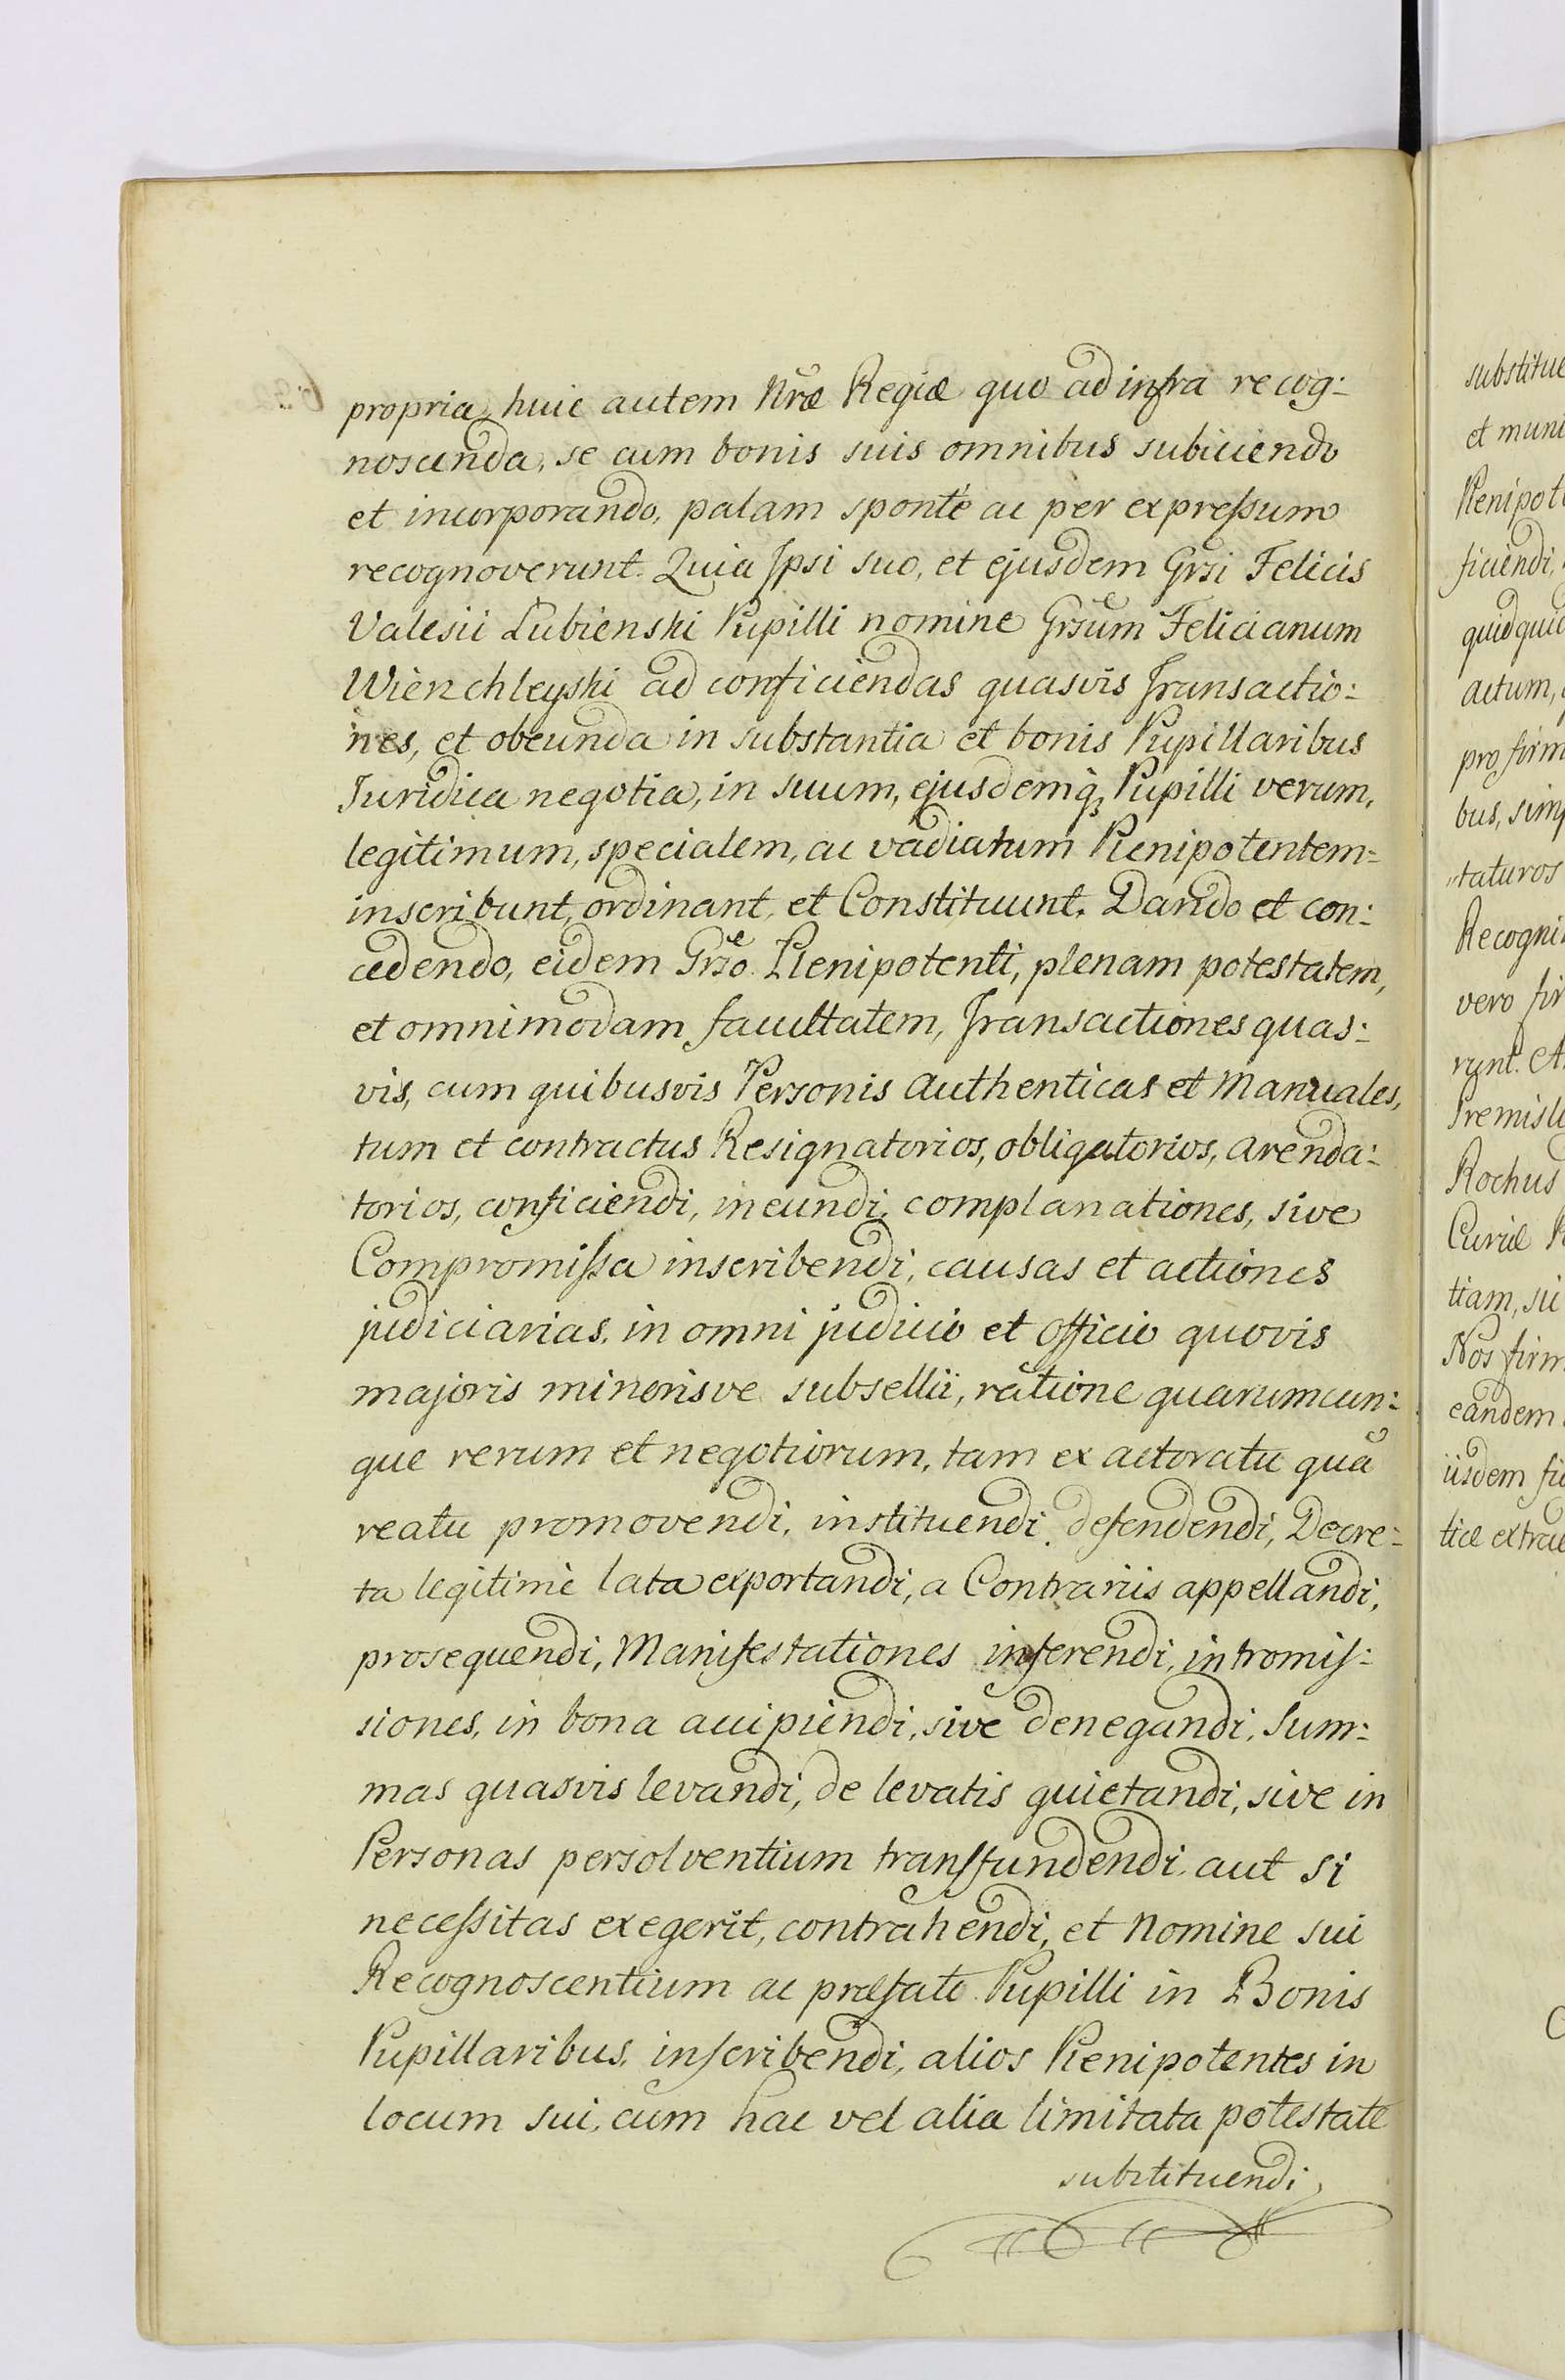 propria, huic autem Nræ Regiæ quo ad infra recog:
noscenda, se cum bonis suis omnibus subiiciendo
et incorporando, palam sponte ac per expreſsum
recognoverunt. Quia Ipsi suo, et ejusdem Grsi Felicis
Valesii Łubienski Pupilli nomine Grsum Felicianum
Wienchleyski ad conficiendas quasvis Transactio:
nes, et obeunda in substantia et bonis Pupillaribus
Juridica negotia, in suum, ejusdemq̃ Pupilli verum,
legitimum, specialem, ac vadiatum Plenipotentem
inscribunt, ordinant, et Constituunt. Dando et con:
cedendo, eidem Grso Plenipotenti, plenam potestatem,
et omnimodam facultatem, Transactiones quas:
vis, cum quibusvis Personis authenticas et Manuales,
tum et contractus Resignatorios, obligatorios, arenda:
torios, conficiendi, ineundi, complanationes, sive
Compromiſsa inscribendi, causas et actiones
judiciarias, in omni judicio et officio quovis
majoris minorisve subsellii, ratione quarumcun:
que rerum et negotiorum, tam ex actoratu quã
reatu promovendi, instituendi, defendendi, Decre:
ta legitime lata exportandi, a Contrariis appellandi,
prosequendi, Manifestationes inferendi, intromiſ:
siones, in bona accipiendi, sive denegandi, Sum:
mas quasvis levandi, de levatis quietandi, sive in
Personas persolventium transfundendi, aut si
neceſsitas exegerit, contrahendi, et Nomine sui
Recognoscentium ac præfati Pupilli in Bonis
Pupillaribus, inscribendi, alios Plenipotentes in
locum sui, cum hac vel alia limitata potestate
substituendi,
substitue
et muni
Plenipot
ficiendi,
quidquid
actum,
pro firm
bus, simp
taturos
Recogni
vero fir
runt. A
Premisl
Rochus
Curiæ
tiam, si
Nos firm
eandem
iisdem fi
ticæ extra